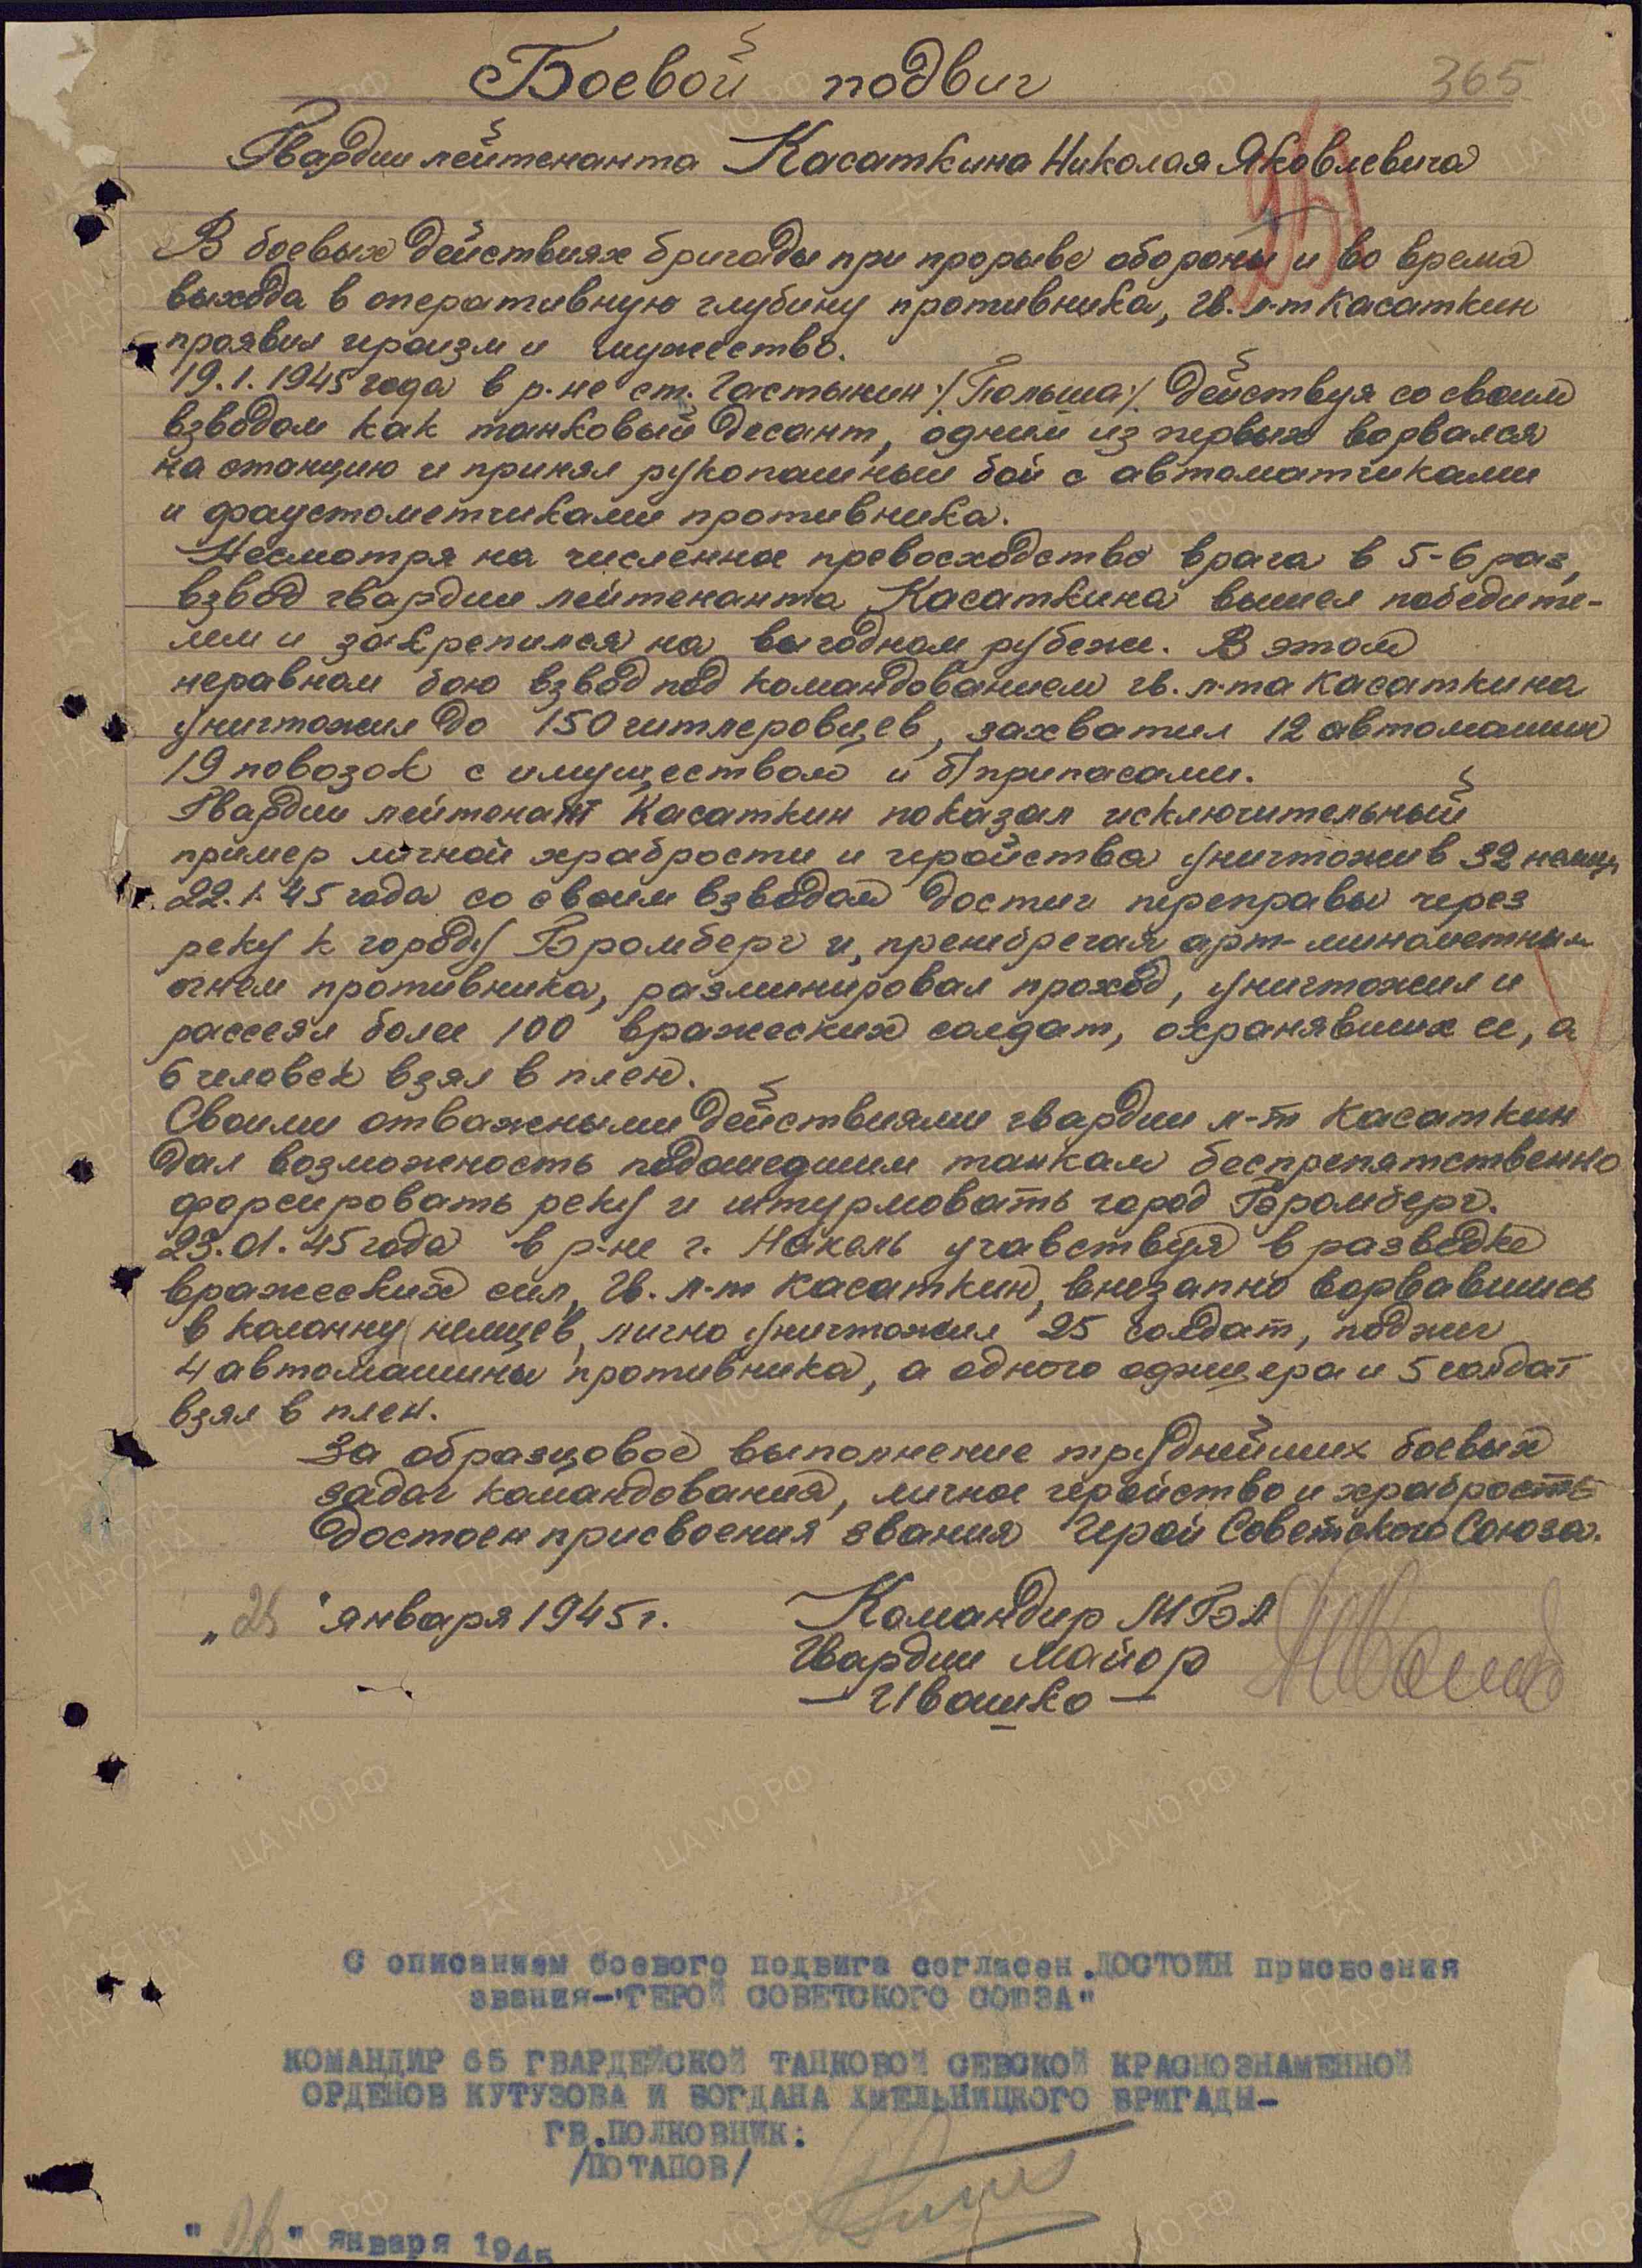 365
Боевой подвиг
Гвардии лейтенанта Касаткина Николая Яковлевича
В боевых действиях бригады при прорыве обороны и во время
выхода в оперативную глубину противника, гв. л-т Касаткин
проявил героизм и мужество.
19.1.1945 года в р-не ст. Гастынин /Польша/ действуя со своим
взводом как танковый десант, одним из первых ворвался
на станцию и принял рукопашный бой с автоматчиками
и фаустометчиками противника.
Несмотря на численное превосходство врага в 5-6 раз,
взвод гвардии лейтенанта Касаткина вышел победите-
лем и закрепился на выгодном рубеже. В этом
неравном бою взвод под командованием гв. л-та Касаткина
уничтожил до 150 гитлеровцев, захватил 12 автомашин
19 повозок с имуществом и б/припасами.
Гвардии лейтенант Касаткин показал исключительный
пример личной храбрости и геройства уничтожив 32 немц.
22.1.45 года со своим взводом достиг переправы через
реку к городу Бромберг и, пренебрегая арт-минометным
огнем противника, разминировал проход, уничтожил и
рассеял более 100 вражеских солдат, охранявших ее, а
6 человек взял в плен.
Своими отважными действиями гвардии л-т Касаткин
дал возможность подошедшим танкам беспрепятственно
форсировать реку и штурмовать город Бромберг.
23.01.45 года в р-не г. Накель учавствуя в разведке
вражеских сил, гв. л-т Касаткин, внезапно ворвавшись
в колонну немцев, лично уничтожил 25 солдат, поджег
4 автомашины противника, а одного офицера и 5 солдат
взял в плен.
За образцовое выполнение труднейших боевых
задач командования, личное геройство и храбрость
достоен присвоения звания Герой Советского Союза.
"25" января 1945 г.
Командир МБА
Гвардии майор
— Ивашко —
С описанием боевого подвига согласен.ДОСТОИН присвоения
звания-"ГЕРОЙ СОВЕТСКОГО СОЮЗА"
КОМАНДИР 65 ГВАРДЕЙСКОЙ ТАНКОВОЙ СЕВСКОЙ КРАСНОЗНАМЕННОЙ
ОРДЕНОВ КУТУЗОВА И БОГДАНА ХМЕЛЬНИЦКОГО БРИГАДЫ-
ГВ.ПОЛКОВНИК:
/ПОТАПОВ/
"26" января 1945